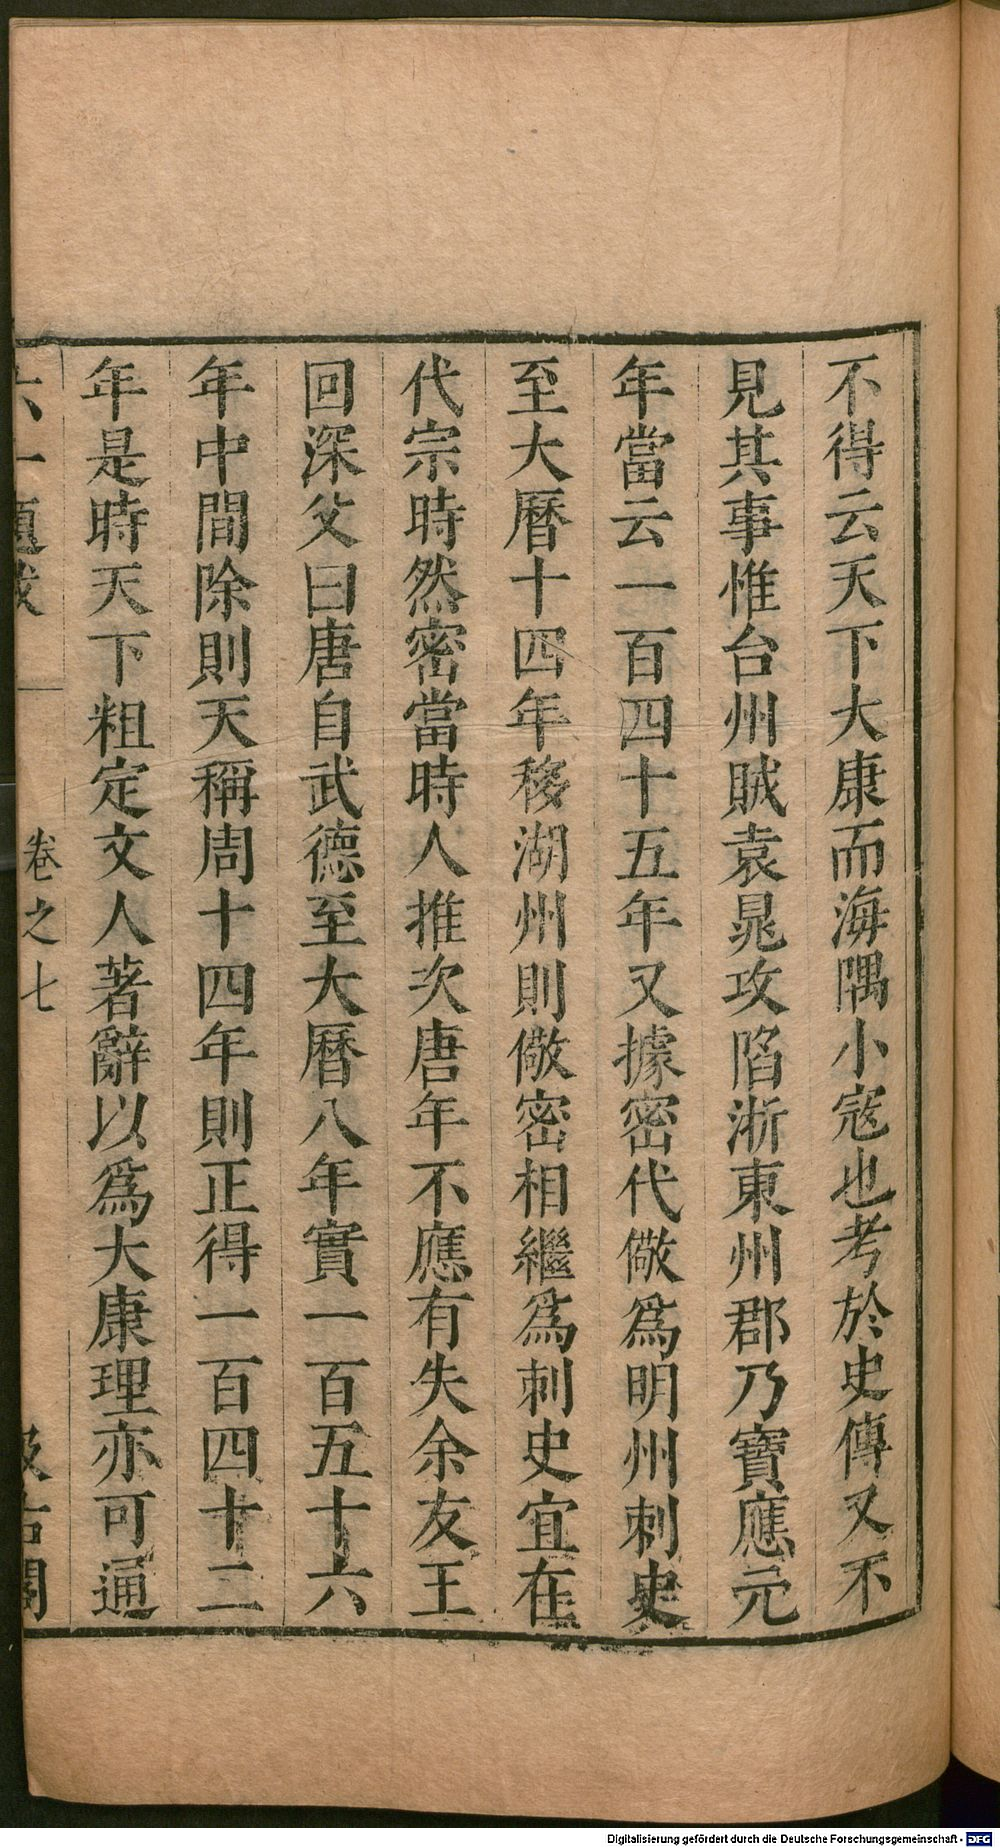 不得云天下大康而海隅小寇也考於史傳又不
見其事惟台州賊袁晁攻陷浙東州郡乃寶應元
年當云一百四十五年又據密代儆爲明州刺史
至大曆十四年移湖州則儆密相繼爲刺史宜在
代宗時然密當時人推次唐年不應有失余友王
回深父曰唐自武德至大曆八年實一百五十六
年中間除則天稱周十四年則正得一百四十二
年是時天下粗定文人著辭以爲大康理亦可通
六一題跋 卷之七 汲古閣
Digitalisierung gefördert durch die Deutsche Forschungsgemeinschaft - DFG